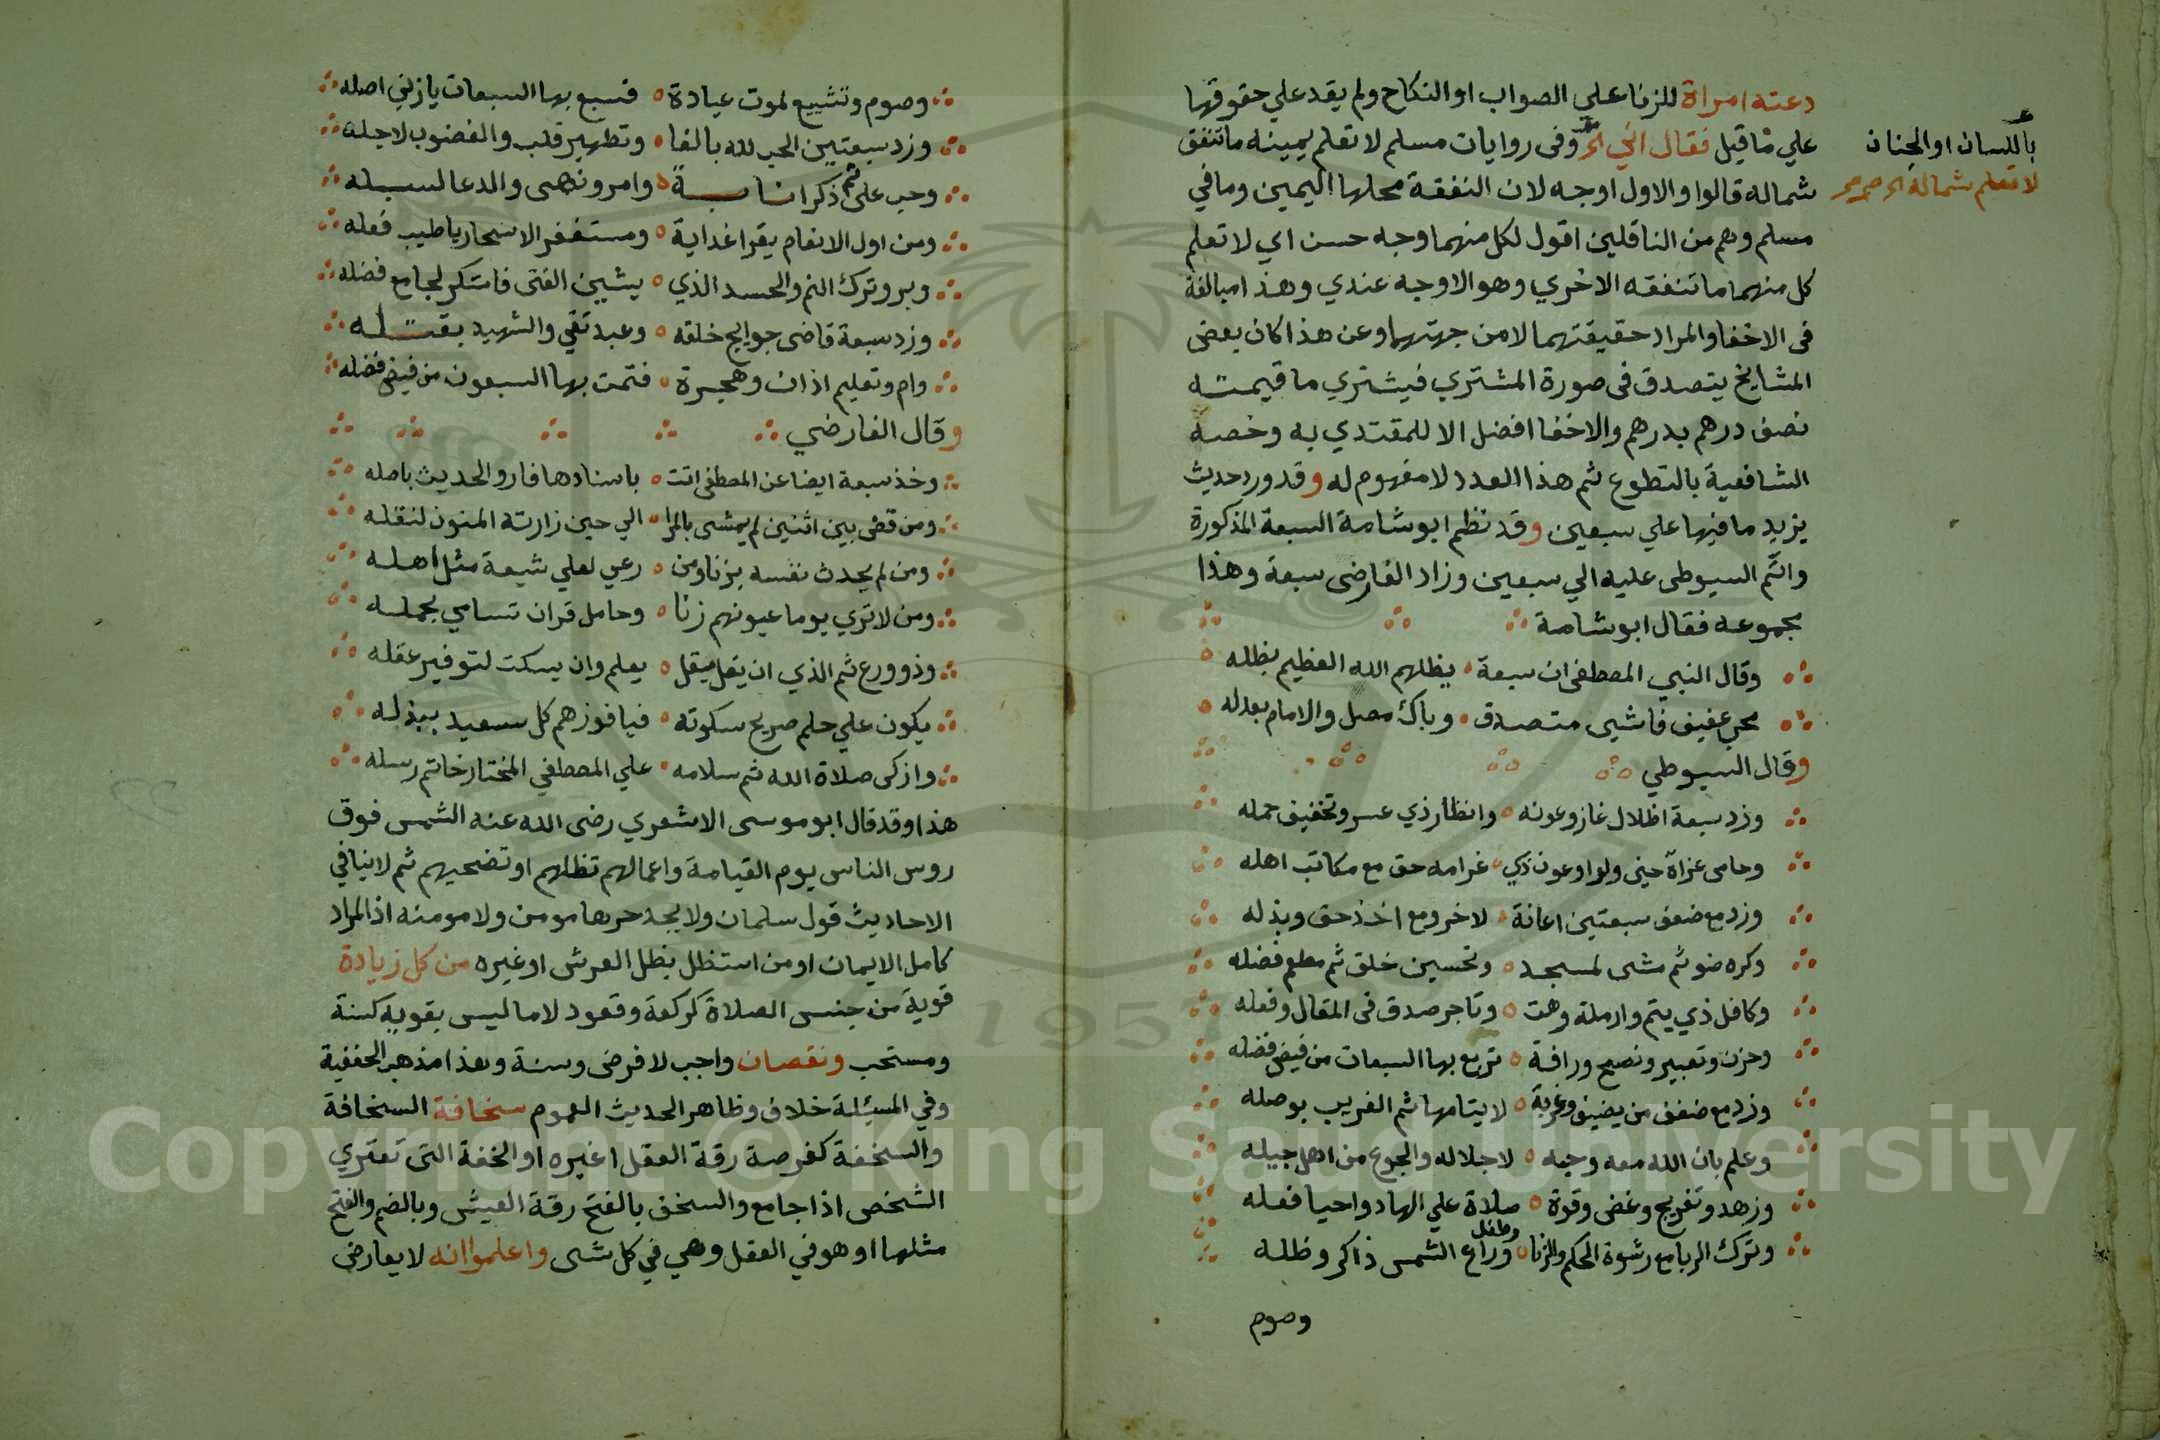 دعته امراة للزنا علي الصواب او النكاح ولم يقد علي حقوقها
علي ما قيل فقال اني الخ وفى روايات مسلم لا تعلم يمينه ما تنفق
شماله قالوا والاول اوجه لان النفقة محلها اليمين وما في
مسلم وهم من الناقلين اقول لكل منهما وجه حسن اي لا تعلم
كل منهما ما تنفقه الاخري وهو الاوجه عندي وهذا مبالغة
فى الاخفا والمراد حقيقتهما لا من جهتهما وعن هذا كان بعض
المشايخ يتصدق فى صورة المشتري فيشتري ما قيمته
نصف درهم بدرهم والاخفا افضل الا للمقتدي به وخصه
الشافعية بالتطوع ثم هذا العدد لا مفهوم له وقد ورد حديث
يزيد ما فيها علي سبعين وقد نظم ابو شامة السبعة المذكورة
واتم السيوطى عليه الي سبعين وزاد الفارضى سبعة وهذا
مجموعه فقال ابو شامة
وقال النبي المصطفى ان سبعة يظلهم الله العظيم بظله
محب عفيف ناشي متصدق وباك مصل والامام بعدله
وقال السيوطي
وزد سبعة اظلال غاز وعونه وانظار ذي عسر وتخفيف حمله
وحامى غزاة حين ولوا وعون ذي غرامة حق مع مكاتب اهله
وزد مع ضعف سبعتين اعانة لاخرق مع اخذ حق وبذله
وكره ضو ثم مشى لمسجد وتحسين خلق ثم مطعم فضله
وكافل ذي يتم وارملة وهت وتاجر صدق فى المقال وفعله
وحزن وتعبير ونصح ورافة تربع بها السبعات من فيض فضله
وزد مع ضعف من يضيف وغربة لايتامها ثم الغريب بوصله
وعلم بان الله معه وحبه لاجلاله والجوع من اهل جيله
وزهد وتفريج وغض وقوة صلاة علي الهاد واحيا فعله
وترك الربا مع رشوة الحكم والزنا وطفل وراع الشمس ذاكر وظله
وصوم
باللسان او الجنان
لا تعلم شماله الخ
وصوم وتشييع لموت عيادة فسبع بها السبعات يا زيني اصله
وزد سبعتين الحب لله بالغا وتطهير قلب والغضوب لاجله
وحب علي ثم ذكر انابة وامر ونهى والدعا لسبيله
ومن اول الانعام يقرا غداية ومستغفر الاسحار يا طيب فعله
وبر وترك النم والحسد الذي يشين الفتى فاشكر لجامع فضله
وزد سبعة قاضى حوايج خلقه وعبد تقي والشهيد بقتله
وام وتعليم اذان وهجرة فتمت بها السبعون من فيض فضله
وقال الفارضي
وخذ سبعة ايضا عن المصطفى اتت باسنادها فارو الحديث باصله
ومن قط بين اثنين لم يمشى بالمرا الي حين زارته المنون لنقله
ومن لم يحدث نفسه بزنا ومن رعي لعلي شيعة مثل اهله
ومن لا تري يوما عيونهم زنا وحامل قران تسامي بحمله
وذو ورع ثم الذي ان يقل يقل يعلم وان يسكت لتوفير عقله
يكون علي حلم صريح سكوته فيا فوزهم كل سعيد ببذله
وازكى صلاة الله ثم سلامه علي المصطفي المختار خاتم رسله
هذا وقد قال ابو موسى الاشعري رضى الله عنه الشمس فوق
روس الناس يوم القيامة واعمالهم تظلهم او تضحيهم ثم لا ينافي
الاحاديث قول سلمان ولا يجد حرها مومن ولا مومنه اذ المراد
كامل الايمان او من استظل بظل العرش او غيره من كل زيادة
قوية من جنس الصلاة كركعة وقعود لا ما ليس بقوية كسنة
ومستحب ونقصان واجب لا فرض وسنة وهذا مذهب الحنفية
وفي المسئلة خلاف وظاهر الحديث العموم سخافة السخافة
والسخفة كغرصة رقة العقل او غيره او الخفة التى تعتري
الشخص اذا جامع والسخف بالفتح رقة العيش وبالضم والفتح
مثلها او هو في العقل وهي في كل شى واعلموا انه لا يعارض
1957
Copyright © King Saud University